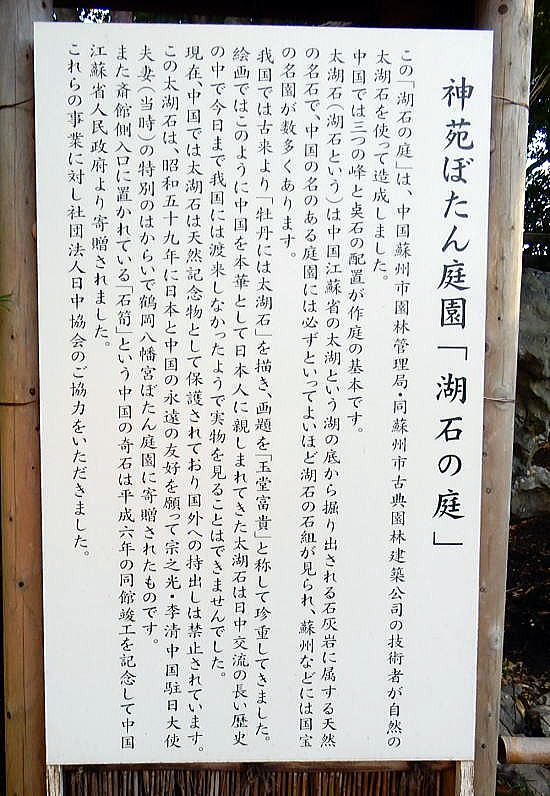 神苑ぼたん庭園「湖石の庭」
この「湖石の庭」は、中国蘇州市園林管理局・同蘇州市古典園林建築公司の技術者が自然の
太湖石を使って造成しました。
中国では三つの峰と奌石の配置が作庭の基本です。
太湖石(湖石という)は中国江蘇省の太湖という湖の底から掘り出される石灰岩に属する天然
の名石で、中国の名のある庭園には必ずといってよいほど湖石の石組が見られ、蘇州などには国宝
の名園が数多くあります。
我国では古来より「牡丹には太湖石」を描き、画題を「玉堂富貴」と称して珍重してきました。
絵画ではこのように中国を本華として日本人に親しまれてきた太湖石は日中交流の長い歴史
の中で今日まで我国には渡来しなかったようで実物を見ることはできませんでした。
現在、中国では太湖石は天然記念物として保護されており国外への持出しは禁止されています。
この太湖石は、昭和五十九年に日本と中国の永遠の友好を願って宗之光・李清中国駐日大使
夫妻(当時)の特別のはからいで鶴岡八幡宮ぼたん庭園に寄贈されたものです。
また斎館側入口に置かれている「石筍」という中国の奇石は平成六年の同館竣工を記念して中国
江蘇省人民政府より寄贈されました。
これらの事業に対し社団法人日中協会のご協力をいただきました。